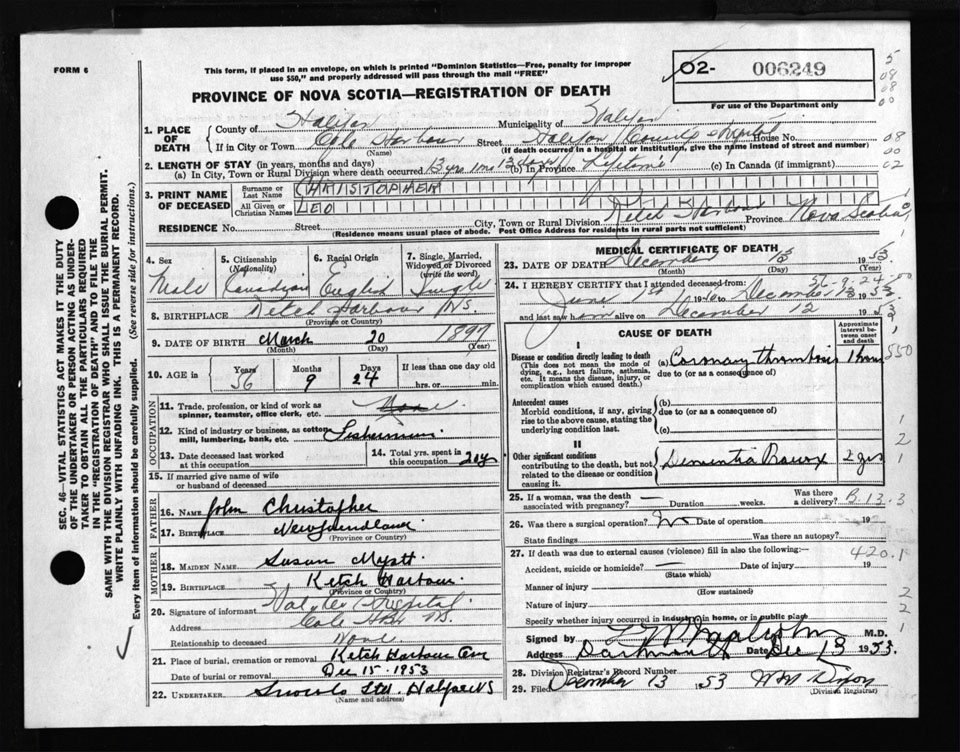 FORM 6
This form, if placed in an envelope, on which is printed "Dominion Statistics—Free, penalty for improper
use $50," and properly addressed will pass through the mail "FREE"
PROVINCE OF NOVA SCOTIA—REGISTRATION OF DEATH
02- 006249
For use of the Department only
1. PLACE OF DEATH
County of Halifax Municipality of Halifax
If in City or Town Cole Harbour Street Halifax County Hospital House No.
(Name) (If death occurred in a hospital or institution, give the name instead of street and number)
2. LENGTH OF STAY (in years, months and days)
(a) In City, Town or Rural Division where death occurred 13 yrs (b) In Province Lifetime (c) In Canada (if immigrant)
3. PRINT NAME OF DECEASED
Surname or Last Name CHRISTOPHER
All Given or Christian Names LEO
RESIDENCE No. Street City, Town or Rural Division Ketch Harbour Province Nova Scotia
(Residence means usual place of abode. Post Office Address for residents in rural parts not sufficient)
4. Sex Male
5. Citizenship (Nationality) Canadian
6. Racial Origin English
7. Single, Married, Widowed or Divorced (write the word) Single
8. BIRTHPLACE Ketch Harbour N.S.
(Province or Country)
9. DATE OF BIRTH March 20 1897
(Month) (Day) (Year)
10. AGE in Years 56 Months 9 Days 24 If less than one day old
hrs. or min.
OCCUPATION
11. Trade, profession, or kind of work as spinner, teamster, office clerk, etc. None
12. Kind of industry or business, as cotton mill, lumbering, bank, etc. Fisherman
13. Date deceased last worked at this occupation
14. Total yrs. spent in this occupation
15. If married give name of wife or husband of deceased
FATHER
16. Name John Christopher
17. Birthplace Newfoundland
(Province or Country)
MOTHER
18. Maiden Name Susan Myatt
19. Birthplace Ketch Harbour.
(Province or Country)
20. Signature of informant Halifax Hospital
Address Cole Hbr N.S.
Relationship to deceased None
21. Place of burial, cremation or removal Ketch Harbour Cem
Date of burial or removal Dec 15-1953
22. Undertaker Snows Ltd. Halifax N S
(Name and address)
MEDICAL CERTIFICATE OF DEATH
23. DATE OF DEATH December 13 1953
(Month) (Day) (Year)
24. I HEREBY CERTIFY that I attended deceased from:
June 1st 1940 to December 13 1953
and last saw him alive on December 12 1953
CAUSE OF DEATH
Approximate interval between onset and death
I
Disease or condition directly leading to death
(This does not mean the mode of dying, e.g., heart failure, asthenia, etc. It means the disease, injury, or complication which caused death.)
(a) Coronary thrombosis 1 hour
due to (or as a consequence of)
Antecedent causes
Morbid conditions, if any, giving rise to the above cause, stating the underlying condition last.
(b)
due to (or as a consequence of)
(c)
II
Other significant conditions
contributing to the death, but not related to the disease or condition causing it.
Dementia Praecox 2 yrs
25. If a woman, was the death associated with pregnancy? Duration weeks. Was there a delivery?
B.13.3
26. Was there a surgical operation? No Date of operation 19
State findings Was there an autopsy?
27. If death was due to external causes (violence) fill in also the following:—
420.1
Accident, suicide or homicide? Date of injury 19
(State which)
Manner of injury
(How sustained)
Nature of injury
Specify whether injury occurred in industry, in home, or in public place
Signed by M.D.
Address Dartmouth Date Dec 13 1953.
28. Division Registrar's Record Number
29. Filed December 13 1953 W M Dixon
(Division Registrar)
SEC. 46—VITAL STATISTICS ACT MAKES IT THE DUTY
OF THE UNDERTAKER OR PERSON ACTING AS UNDER-
TAKER TO OBTAIN ALL THE PARTICULARS REQUIRED
IN THE "REGISTRATION OF DEATH" AND TO FILE THE
SAME WITH THE DIVISION REGISTRAR WHO SHALL ISSUE THE BURIAL PERMIT.
WRITE PLAINLY WITH UNFADING INK. THIS IS A PERMANENT RECORD.
Every item of information should be carefully supplied. (See reverse side for instructions.)